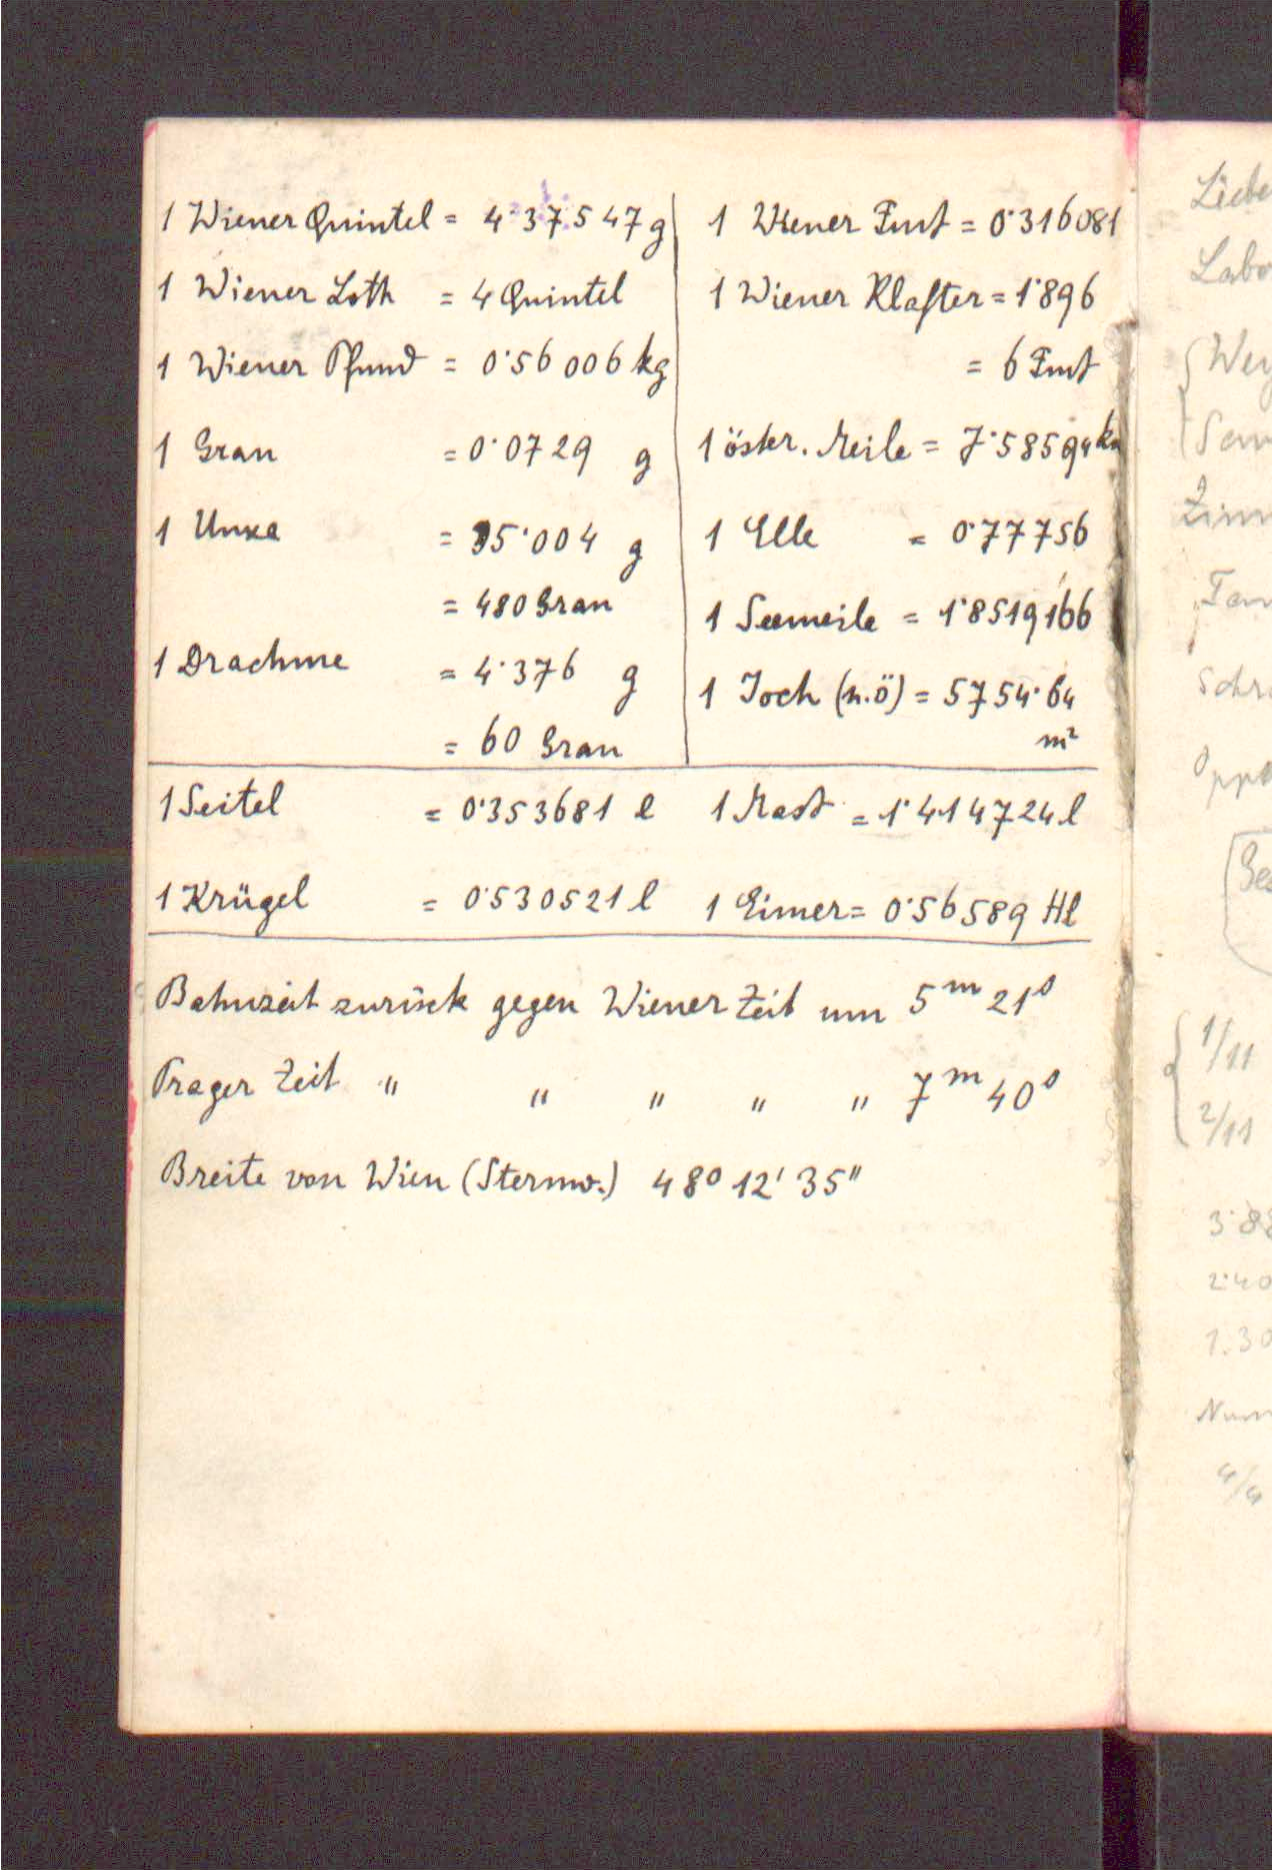 1 Wiener Quintel = 4·37547 g
1 Wiener Loth = 4 Quintel
1 Wiener Pfund = 0·56006 kg
1 Gran = 0·0729 g
1 Unze = 35·004 g
= 480 Gran
1 Drachme = 4·376 g
= 60 Gran
1 Wiener Fuß = 0·316081
1 Wiener Klafter = 1·896
= 6 Fuß
1 öster. Meile = 7·58594 km
1 Elle = 0·77756
1 Seemeile = 1·8519166
1 Joch (n.ö) = 5754·64
m²
1 Seitel = 0·353681 l 1 Maß = 1·414724 l
1 Krügel = 0·530521 l 1 Eimer = 0·56589 Hl
Bahnzeit zurück gegen Wiener Zeit um 5m 21s
Prager Zeit " " " " " 7m 40s
Breite von Wien (Sternw.) 48° 12' 35"
Liebe
Labo
Wey
Zim
Schr
Oppo
1/11
2/11
3·88
2·40
1.30
Num
4/4